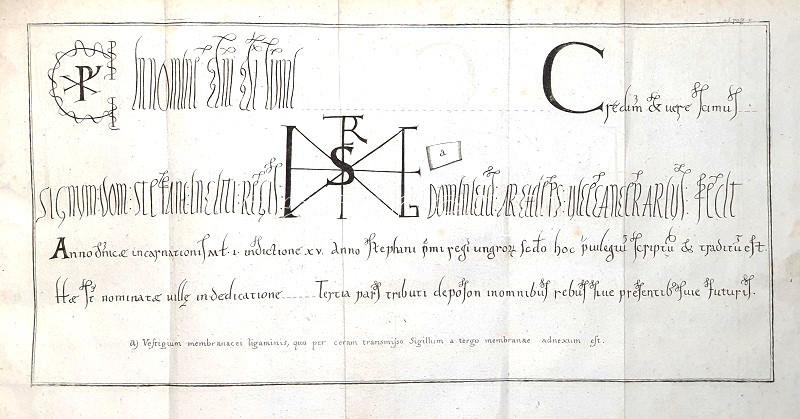 In nomine dni di summi Credim & uere scimus
SIGNUM DOM: STEFANI: INCLITI: REGIS:
T R S
a
DOMINICUS: ARCHIEPS: VICECANCELLARIUS: FECIT
Anno dnicæ incarnationis M. I. indictione XV. Anno Stephani pmi regis ungroꝝ scdo hoc puilegiū scriptū & traditū est.
Hæ st nominatæ uillę in dedicatione ...... Tertia pars tributi de poson in omnibus rebus siue presentibus siue futuris.
a) Vestigium membranacei ligaminis, quo per ceram transmisso Sigillum a tergo membranae adnexum est.